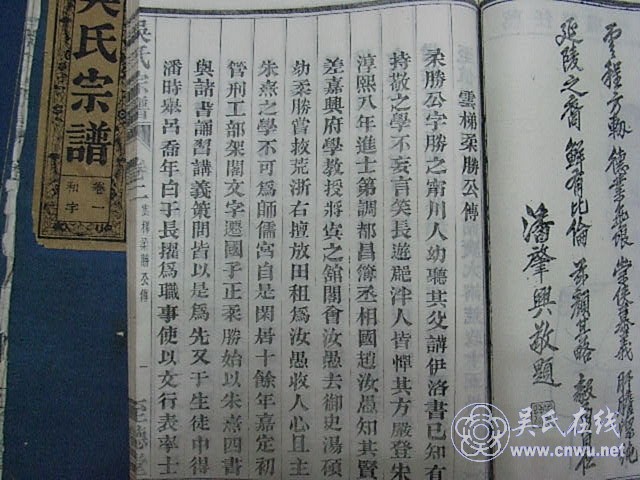 延陵之裔 鮮有比倫
潘肇興敬題
雲梯柔勝公傳
柔勝公字勝之甯川人幼聽其父講伊洛書已知有
持敬之學不妄言笑長遊麗泮人皆憚其方嚴登宋
淳熙八年進士第調都昌簿丞相國趙汝愚知其賢
差嘉興府學教授將寘之館閣會汝愚去御史湯碩
幼柔勝嘗救荒浙右擅放田租爲汝愚收人心且主
朱熹之學不可爲師儒宮自是閑居十餘年嘉定初
管刑工部架閣文字遷國子正柔勝始以朱熹四書
與諸書誦習講義策問皆以是爲先又于生徒中得
潘時舉呂喬年白于長擢爲職事使以文行表率士
吳氏宗譜 卷二 雲梯柔勝公傳 一 至德堂
吳氏宗譜
卷一
和字
吴氏在线
www.cnwu.net